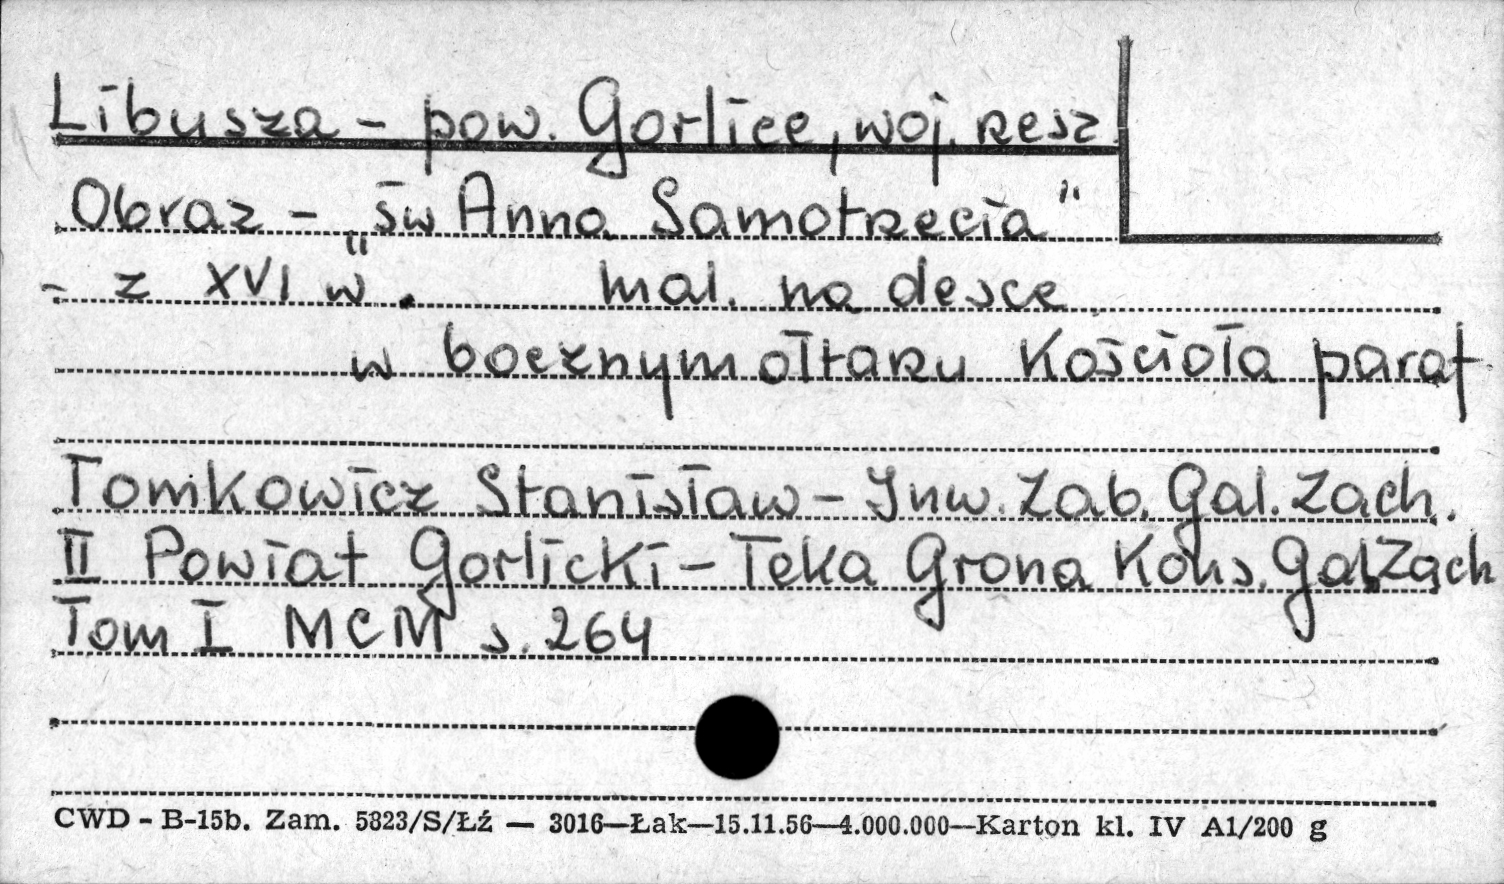 Libusza - pow. Gorlice, woj. rzesz.
Obraz - „św Anna Samotrzecia"
- z XVI w. mal. na desce
w bocznym ołtarzu Kościoła paraf
Tomkowicz Stanisław - Inw. Zab. Gal. Zach.
II Powiat Gorlicki - Teka Grona Kons. Gal. Zach
Tom I MCM s. 264
CWD - B-15b. Zam. 5823/S/Łź — 3016—Łak—15.11.56—4.000.000—Karton kl. IV A1/200 g